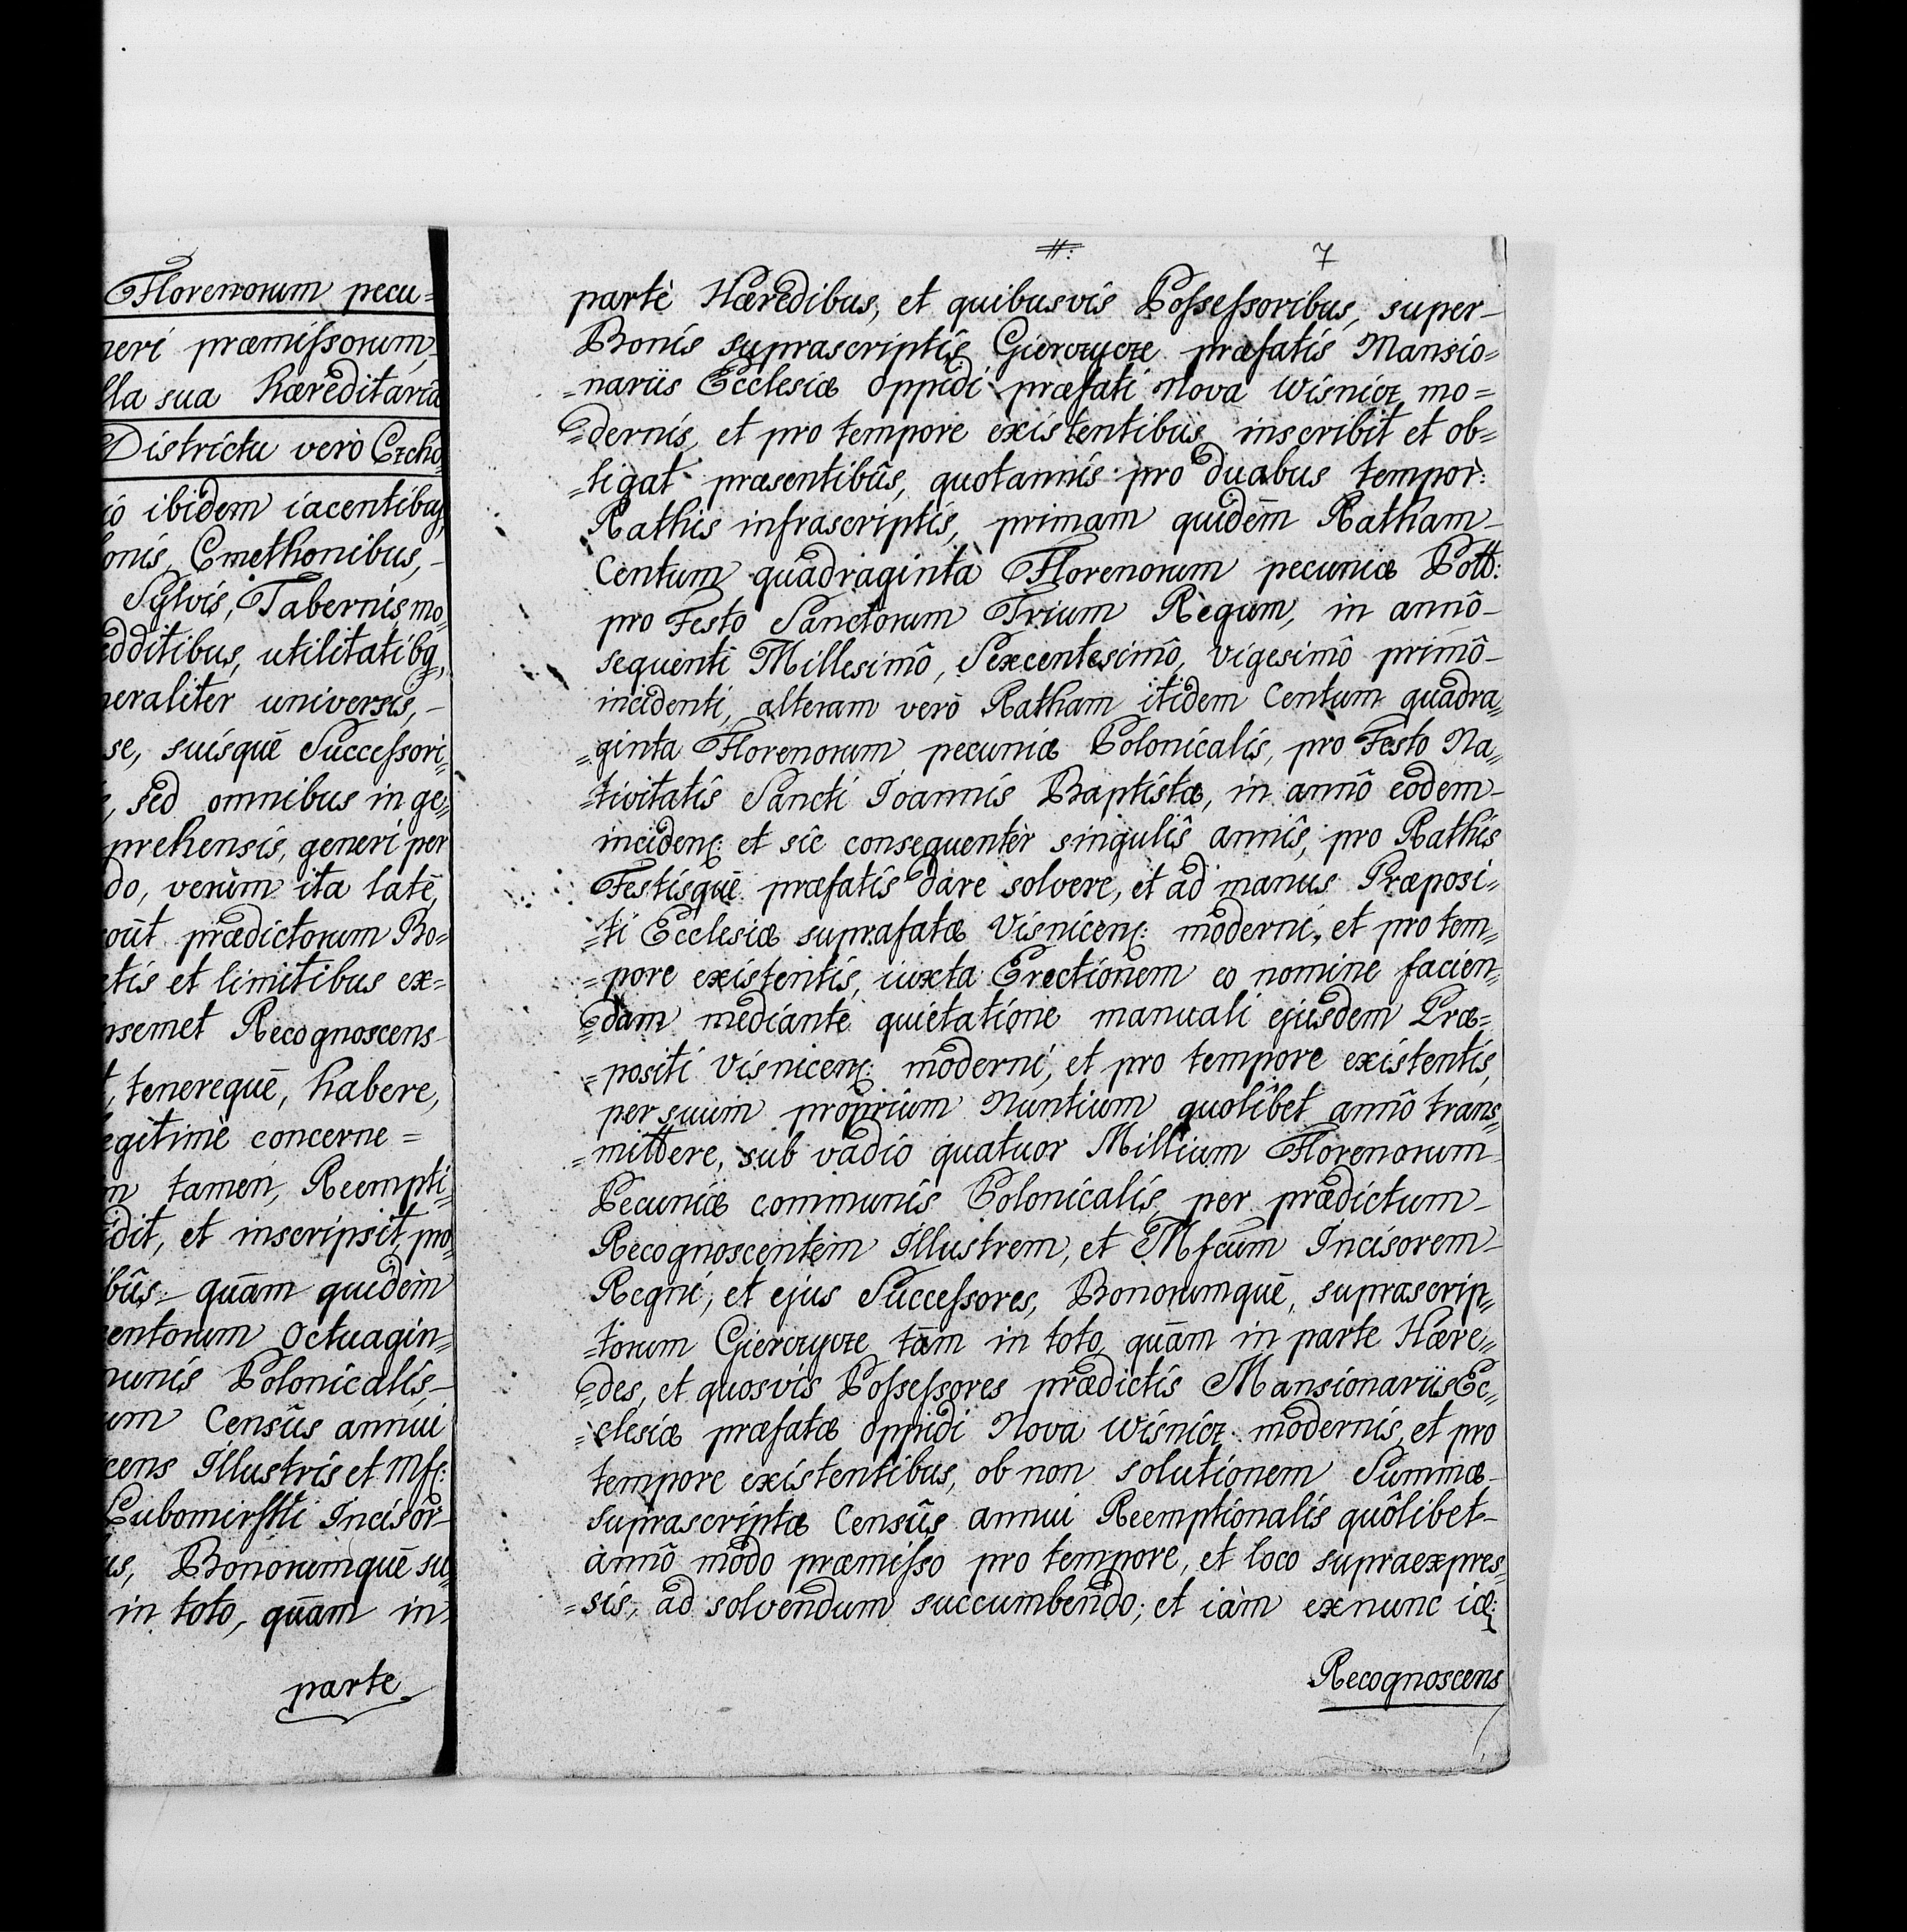 Florenorum pecu=
neri præmissorum,
lla sua hæreditaria
Districtu verò Czcho
ió ibidem iacentibus
onis, Cmethonibus,
Sylvis, Tabernis, mo,,
edditibus, utilitatibq,
neraliter universis,
se, suisquē Successori,,
, sed omnibus in ge,,
prehensis, generi per
do, verùm ita latē,
oūt prædictorum Bo=
tis et limitibus ex=
nsemet Recognoscens
t, tenerequē, habere,
egitimè concerne=
n tamen, Reempti,,
dit, et inscripsit, pro,,
bûs. quām quidem
entorum Octuagin=
unis Polonicalis,
um Censûs annui
cens Illustris et Mfc:
Lubomirski Incisor
us, Bonorumquē su,,
in toto, quām in
parte
#: 7
partè Hæredibus, et quibusvis Possessoribus, super
Bonis suprascriptis Gierczycze præfatis Mansio=
=nariis Ecclesiæ Oppidi præfati Nova Wisnicz mo=
=dernis, et pro tempore existentibus inscribit et ob=
=ligat præsentibûs, quotannis pro duabus tempor:
Rathis infrascriptis, primam quidēm Ratham
Centum quadraginta Florenorum pecuniæ Poll:
pro Festo Sanctorum Trium Regum, in annô
sequenti Millesimô, Sexcentesimô, vigesimô primô
incidenti, alteram verò Ratham itidem Centum quadra,,
=ginta Florenorum pecuniæ Polonicalis, pro Festo Na,,
=tivitatis Sancti Joannis Baptistæ, in annô eôdem
inciden: et sic consequentèr singulîs annîs, pro Rathis
Festisquē præfatis dare solvere, et ad manus Præposi,,
=ti Ecclesiæ suprafatæ Visnicen: moderni, et pro tem,,
=pore existentis, iuxta Erectionem eo nomine facien,,
=dam mediante quietatione manuali ejusdem Præ=
=positi Visnicen: moderni, et pro tempore existentis,
per suum proprium Nuntium quolibet annô trans,,
=mittere, sub vadio quatuor Millium Florenorum
Pecuniæ communis Polonicalis, per prædictum
Recognoscentem Illustrem, et Mfcum Incisorem
Regni, et ejus Successores, Bonorumquē, suprascrip,,
=torum Gierczycze tām in toto, quām in parte Hære,,
=des, et quosvis Possessores prædictis Mansionariis Ec,,
=clesiæ præfatæ Oppidi Nova Wisnicz modernis, et pro
tempore existentibus, ob non solutionem Summæ
suprascriptæ Censûs annui Reemptionalis quôlibet
annô modo præmisso pro tempore, et loco supraexpres,,
=sis, ad solvendum succumbendo; et iàm ex nunc id:
Recognoscens